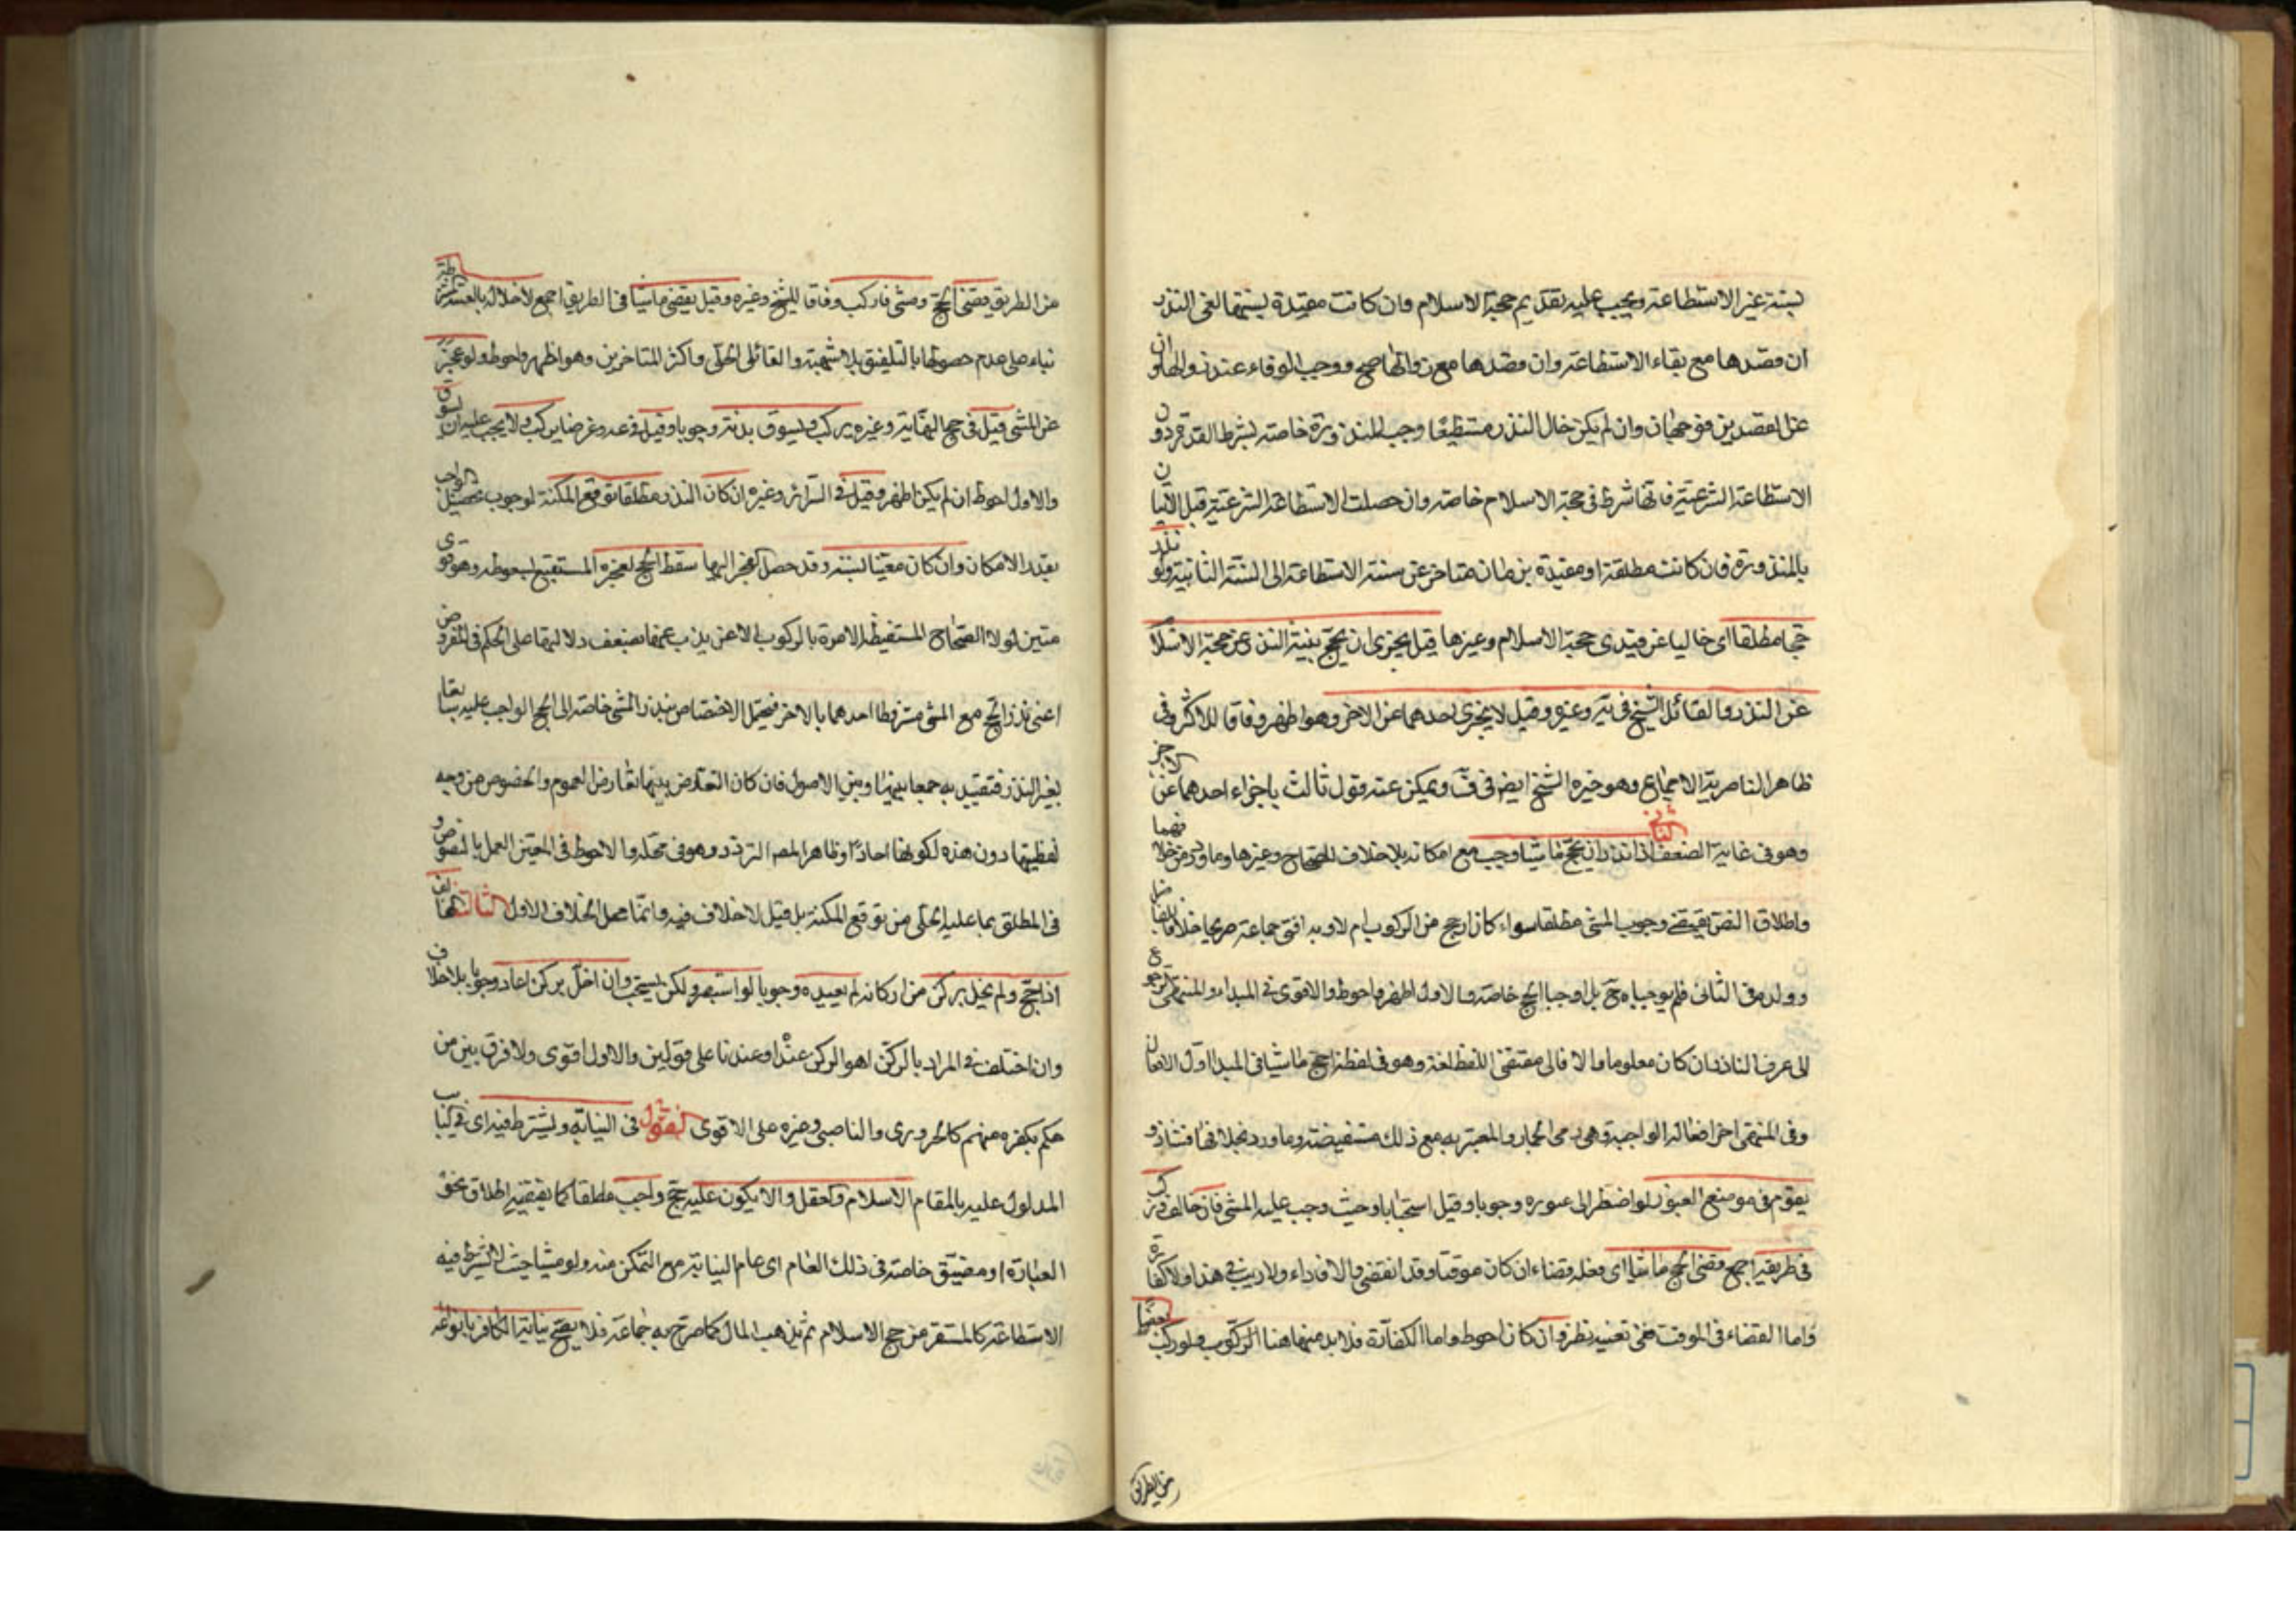 لسنة غير الاستطاعة ويجب عليه تقديم حجة الاسلام وان كانت مقيدة بسنتها لغى النذر
ان قصدها مع بقاء الاستطاعة وان قصدها مع زوالها صح ووجب الوفاء عند زوالها ولو ان
عن القصدين فوجهان وان لم يكن حال النذر مستطيعا وجب المنذورة خاصة بشرط القدرة دون
الاستطاعة الشرعية فانها شرط في حجة الاسلام خاصة وان حصلت الاستطاعة الشرعية قبل الاتيان
بالمنذورة فان كانت مطلقة او مقيدة بزمان متاخر عن سنة الاستطاعة الى السنة الثانية ولو نذر
حجا مطلقا اي خاليا عن قيدي حجة الاسلام وغيرها قيل يجزي ان يحج بنية النذر عن حجة الاسلا
عن النذر والقائل الشيخ في يه وغيره وقيل لا يجزي احدهما عن الاخر وهو اظهر وفاقا للاكثر وفي
ظاهر الناصرية الاجماع وهو خيره الشيخ ايضا في ف ويمكن عنه قول ثالث باجزاء احدهما عن الاخر
وهو في غاية الضعف الثاني اذا نذر ان يحج ماشيا وجب مع امكانه بلا خلاف للصحاح وغيرها وما ورد من خلافهما
واطلاق النص يقتضي وجوب المشي مطلقا سواء كان ارجح من الركوب ام لا وبه افتى جماعة صريحا خلافا
وولده في الثاني فلم يوجباه ح بل اوجبا الحج خاصة والاول اظهر واحوط والاقوى في المبداء والمنتهى الرجوع
الى عرف الناذر ان كان معلوما والا فالى مقتضى اللفظ لغة وهو في لفظة احج ماشيا في المبدا اول الافعال
وفي المنتهى اخر افعاله الواجبة وهي رمي الجمار والمعتبرة به مع ذلك مستفيضة وما ورد بخلافها فشاذ و
يقوم في موضع العبور لو اضطر الى عبوره وجوبا وقيل استحبابا وحيث وجب عليه المشي فان خالف وركب
في طريقه اجمع قضى الحج ماشيا اي فعله قضاء ان كان موقتا وقد انقضى والا فاداء ولا ريب في هذا ولا كفارة
واما القضاء في الموقت ففي تعينه نظر وان كان احوط واما الكفارة فلا بد منها هنا الركوب ولو ركب بعضها
من الطريق
من الطريق يقضي الحج ومشى ما ركب وفاقا للشيخ وغيره وقيل يقضي ماشيا في الطريق اجمع لاخلاله بالصفة المشترطة
بناء على عدم حصولها بالتلفيق بلا شبهة والقائل الحلي واكثر المتاخرين وهو اظهر واحوط ولو عجز
عن المشي قيل في حج النهاية وغيره يركب ويسوق بدنة وجوبا وقيل في عد وغيره ايضا يركب ولا يجب عليه ان يسوق
والاول احوط ان لم يكن اظهر وقيل في السرائر وغيره ان كان النذر مطلقا توقع المكنة لوجوب تحصيل الواجب
بقدر الامكان وان كان معينا لسنة وقد حصل العجز اليها سقط الحج لعجزه المستتبع لسقوطه وهو قوي
متين لولا الصحاح المستفيضة الامرة بالركوب لا عن يذب عنها ضعف دلالتها على الحكم في المفروض
اعني نذر الحج مع المشي مشروطا احدهما بالاخر فيحتمل الاختصاص بنذر المشي خاصة الى الحج الواجب عليه سابقا
بغير النذر فتقييد به جمعا بينها وبين الاصول فان كان التعارض بينهما تعارض العموم والخصوص من وجه
لقطعيتها دون هذه لكونها احادا وظاهر المصر التردد وهو في محله والاحوط في المعين العمل بالنصوص و
في المطلق بما عليه الحلي من توقع المكنة بل قيل لا خلاف فيه وانما محل الخلاف الاول الثالث المخالف
اذا حج ولم يخل بركن من اركانه لم يعيده وجوبا لو استبصر ولكن يستحب وان اخل بركن اعاد وجوبا بلا خلاف
وان اختلف في المراد بالركن اهو الركن عنده او عندنا على قولين والاول اقوى ولا فرق بين من
حكم بكفره منهم كالحروري والناصبي وغيره على الاقوى القول في النيابة ويشترط فيه اي في النائب
المدلول عليه بالمقام الاسلام والعقل والا يكون عليه حج واجب مطلقا كما يقتضيه اطلاق نحو
العبارة او مضيق خاصة في ذلك العام اي عام النيابة مع التمكن منه ولو مشيا حيث لا يشترط فيه
الاستطاعة كالمستقر من حج الاسلام ثم يذهب المال كما صرح به جماعة فلا يصح نيابة الكافر بانواعه